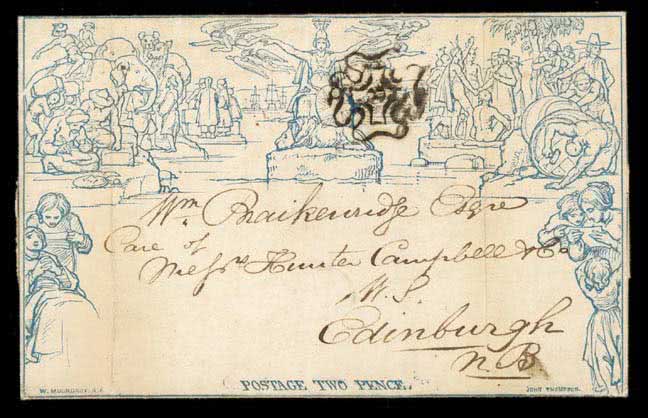 Wm Braikenridge Esqre
Care of
Messrs Hunter Campbell & Co
W.S.
Edinburgh
N.B
POSTAGE TWO PENCE.
W. MULREADY. R.A.
JOHN THOMPSON.